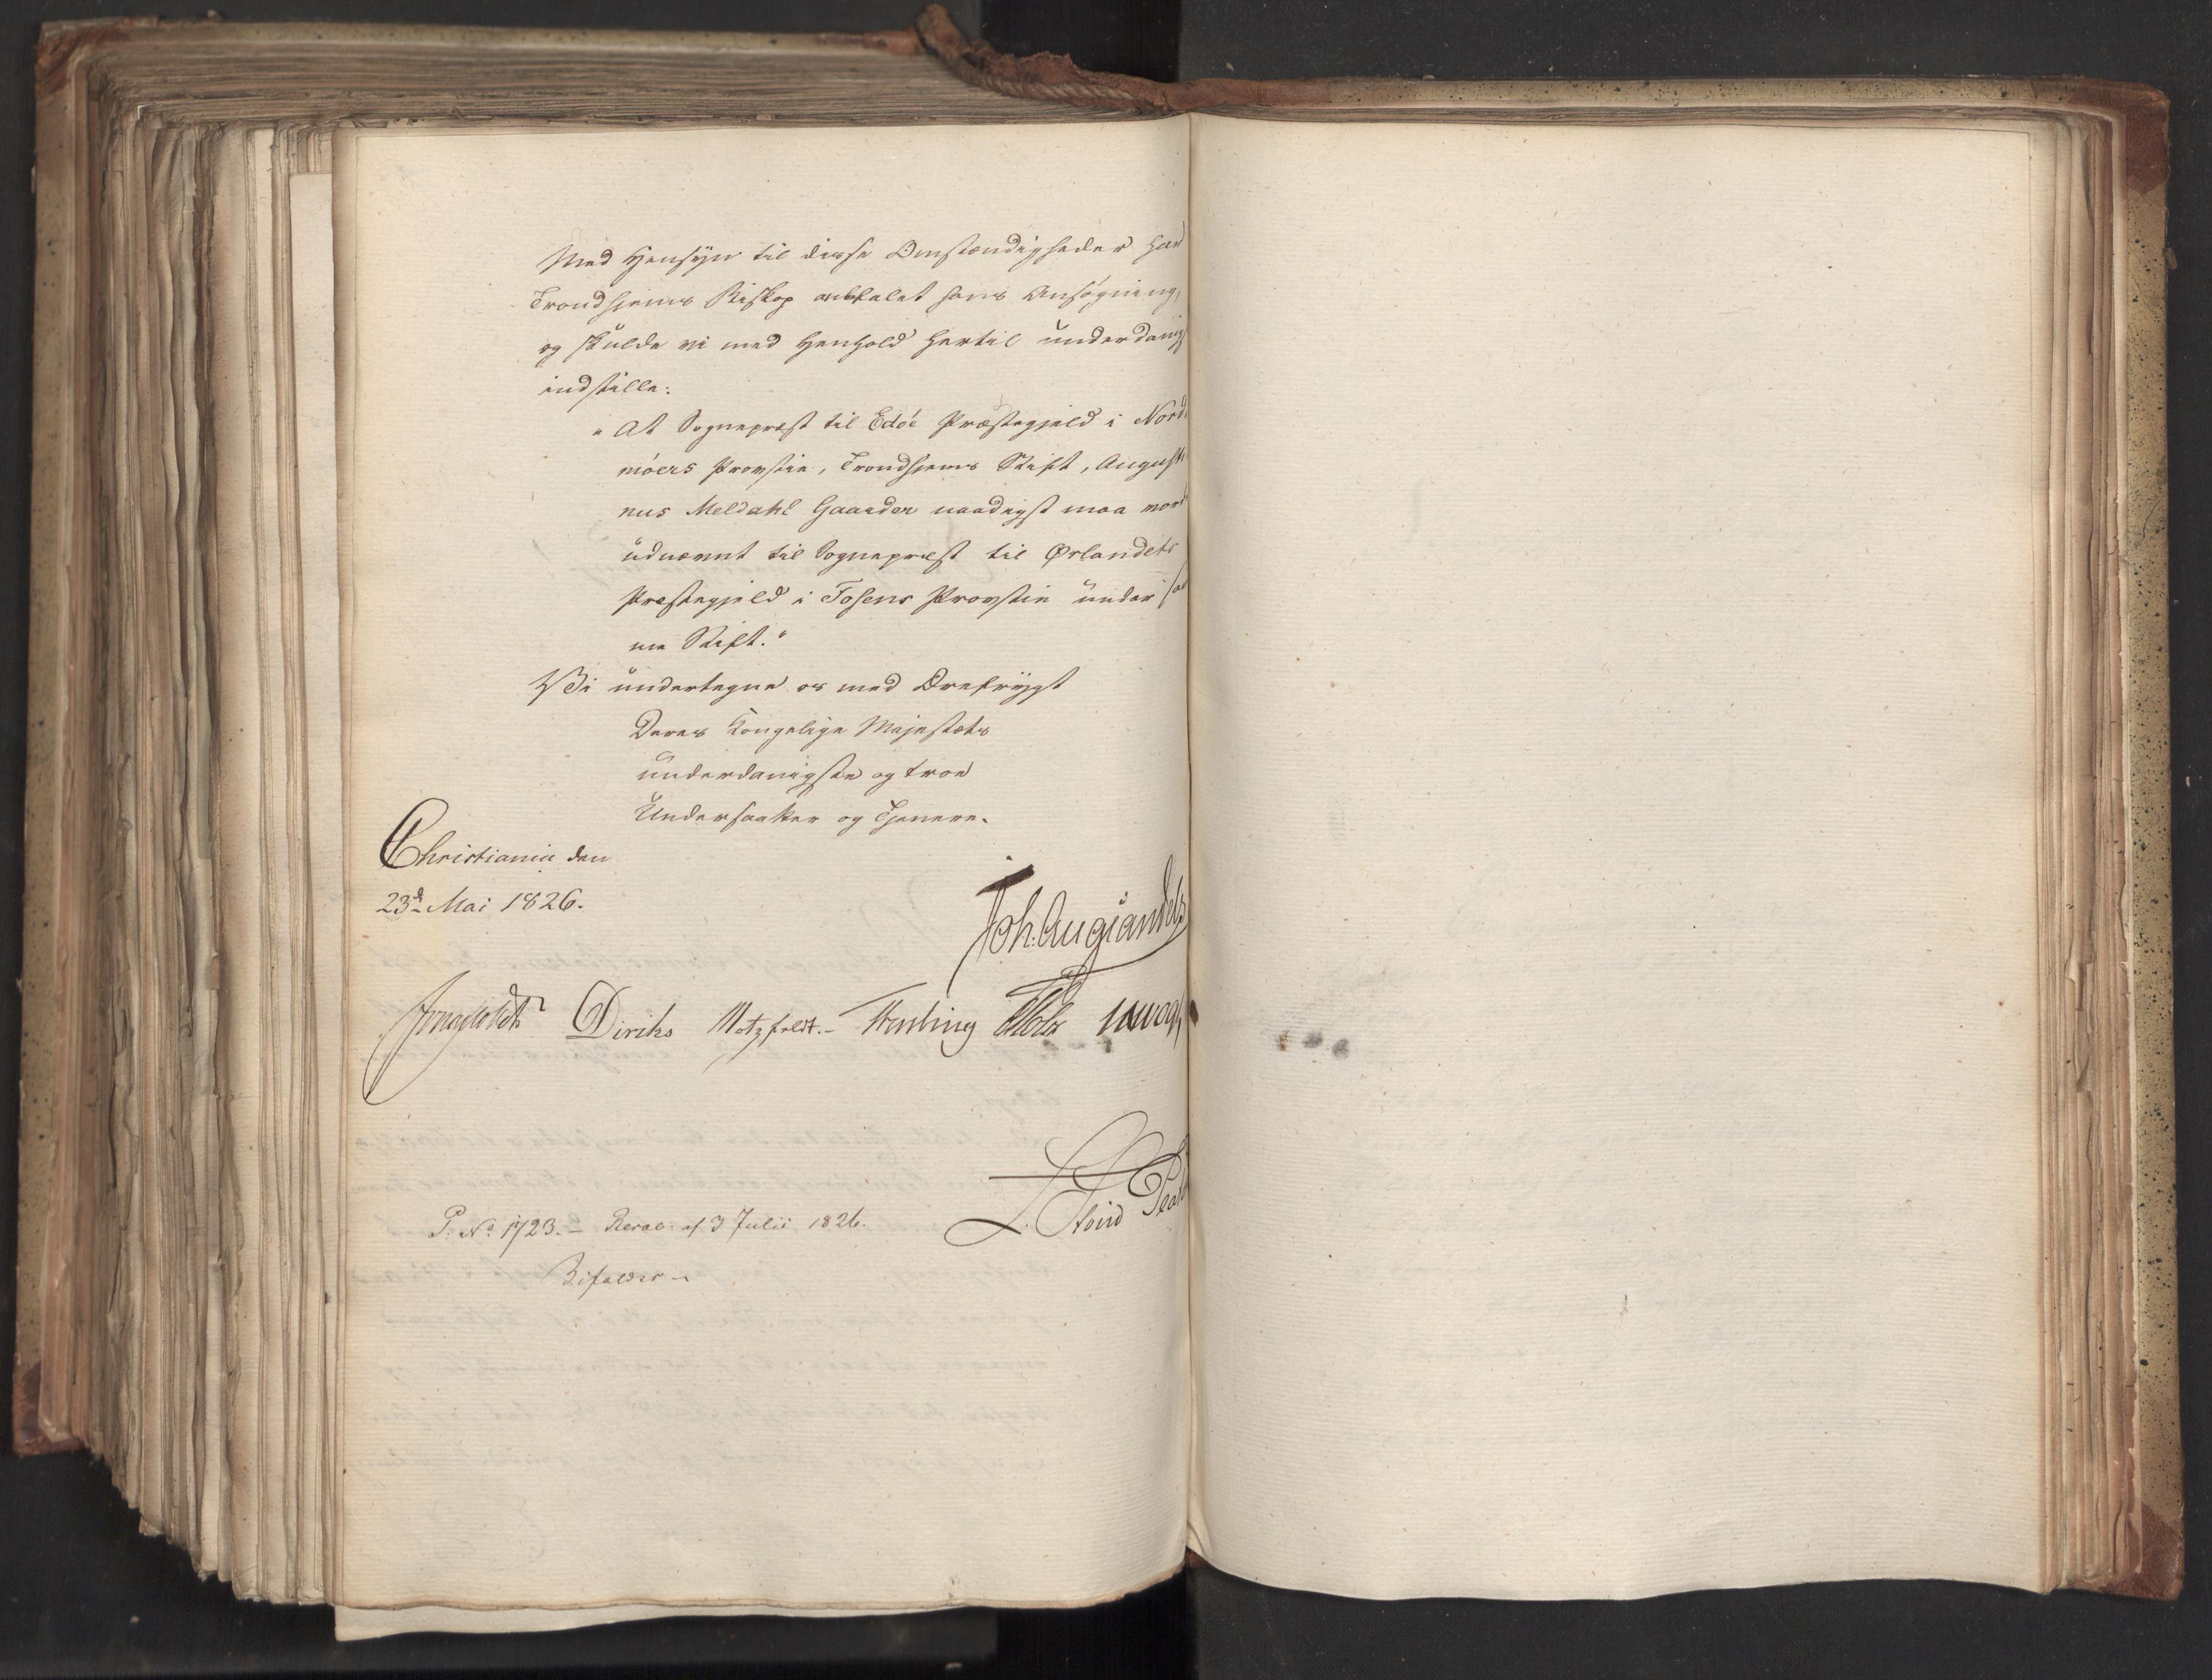 Med Hensyn til disse Omstændigheder har
Trondhjems Biskop anbefalet hans Ansøgning,
og skulde vi med Henhold hertil underdanigst
indstille:
"At Sognepræst til Edöe Præstegjeld i Nord-
möers Provstie, Trondhjems Stift, Augusti-
nus Meldahl Gaarder naadigst maa vorde
udnævnt til Sognepræst til Ørlandets
Præstegjeld i Fosens Provstie under sam-
me Stift."
Vi undertegne os med Ærefrygt
Deres Kongelige Majestæts
underdanigste og troe
Undersaatter og Tjenere.
Christiania den
23d Mai 1826.
Joh: Aug: Sandels
Diriks Motzfeldt. Holst
P: No 1723. – Resol: af 3 Julii 1826.
L. Stoud Plat
Bifaldes –